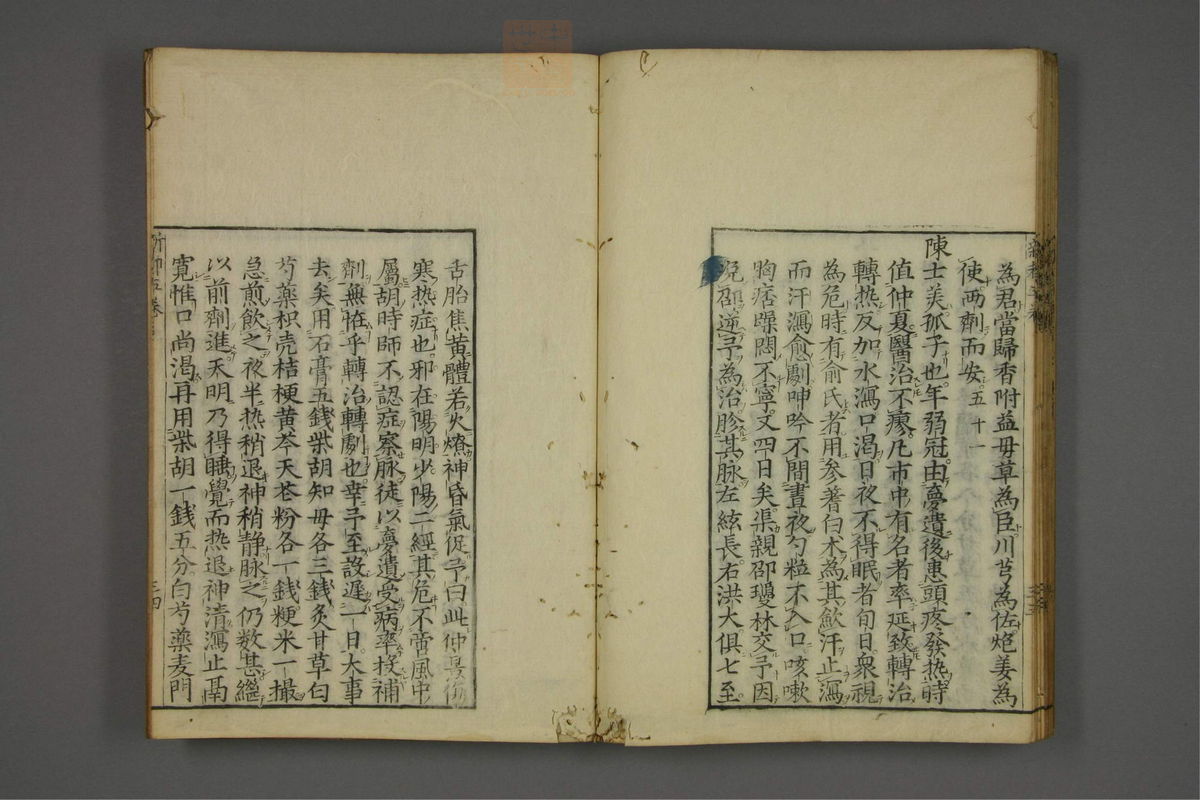 為君當歸香附益母草為臣川芎為佐炮姜為
使两劑而安五十一
陳士美孤子也年弱冠由夢遺後患頭疼發热時
值仲夏醫治不瘳凡市中有名者率延致轉治
轉热反加水瀉口渴日夜不得眠者旬日衆視
為危時有俞氏者用参蓍白术為其歛汗止瀉
而汗瀉愈劇呻吟不間晝夜勺粒不入口咳嗽
胸痞躁悶不寧又四日矣渠親邵瓊林交予因
邵逆予為治胗其脉左絃長右洪大俱七至
舌胎焦黄體若火燎神昏氣促予曰此仲景傷
寒热症也邪在陽明少陽二經其危不啻風中
屬胡時師不認症察脉徒以夢遺受病率投補
劑無恠乎轉治轉劇也幸予至設遲一日大事
去矣用石膏五錢柴胡知母各三錢炙甘草白
芍藥枳壳桔梗黄芩天花粉各一錢粳米一撮
急煎飲之夜半热稍退神稍静脉之仍数甚繼
以前劑進天明乃得睡覺而热退神清瀉止鬲
寛惟口尚渴再用柴胡一錢五分白芍藥麦門
三四